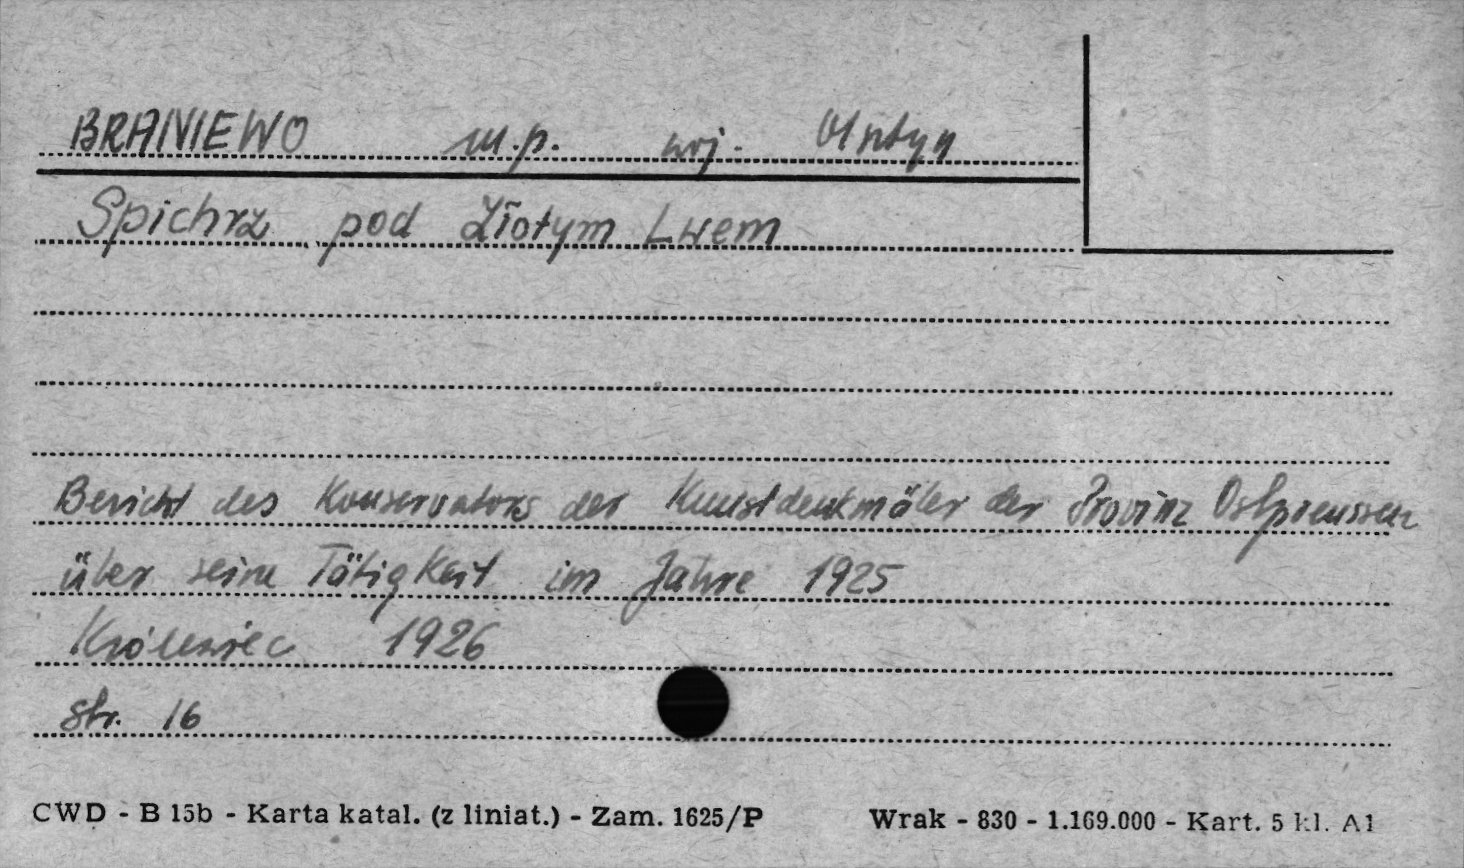 BRANIEWO m.p. woj. Olsztyn
Spichrz pod Złotym Lwem
Bericht des Konservators der Kunstdenkmäler der Provinz Ostpreussen
über seine Tätigkeit im Jahre 1925
Królewiec 1926
str. 16
CWD - B 15b - Karta katal. (z liniat.) - Zam. 1625/P Wrak - 830 - 1.169.000 - Kart. 5 kl. A1